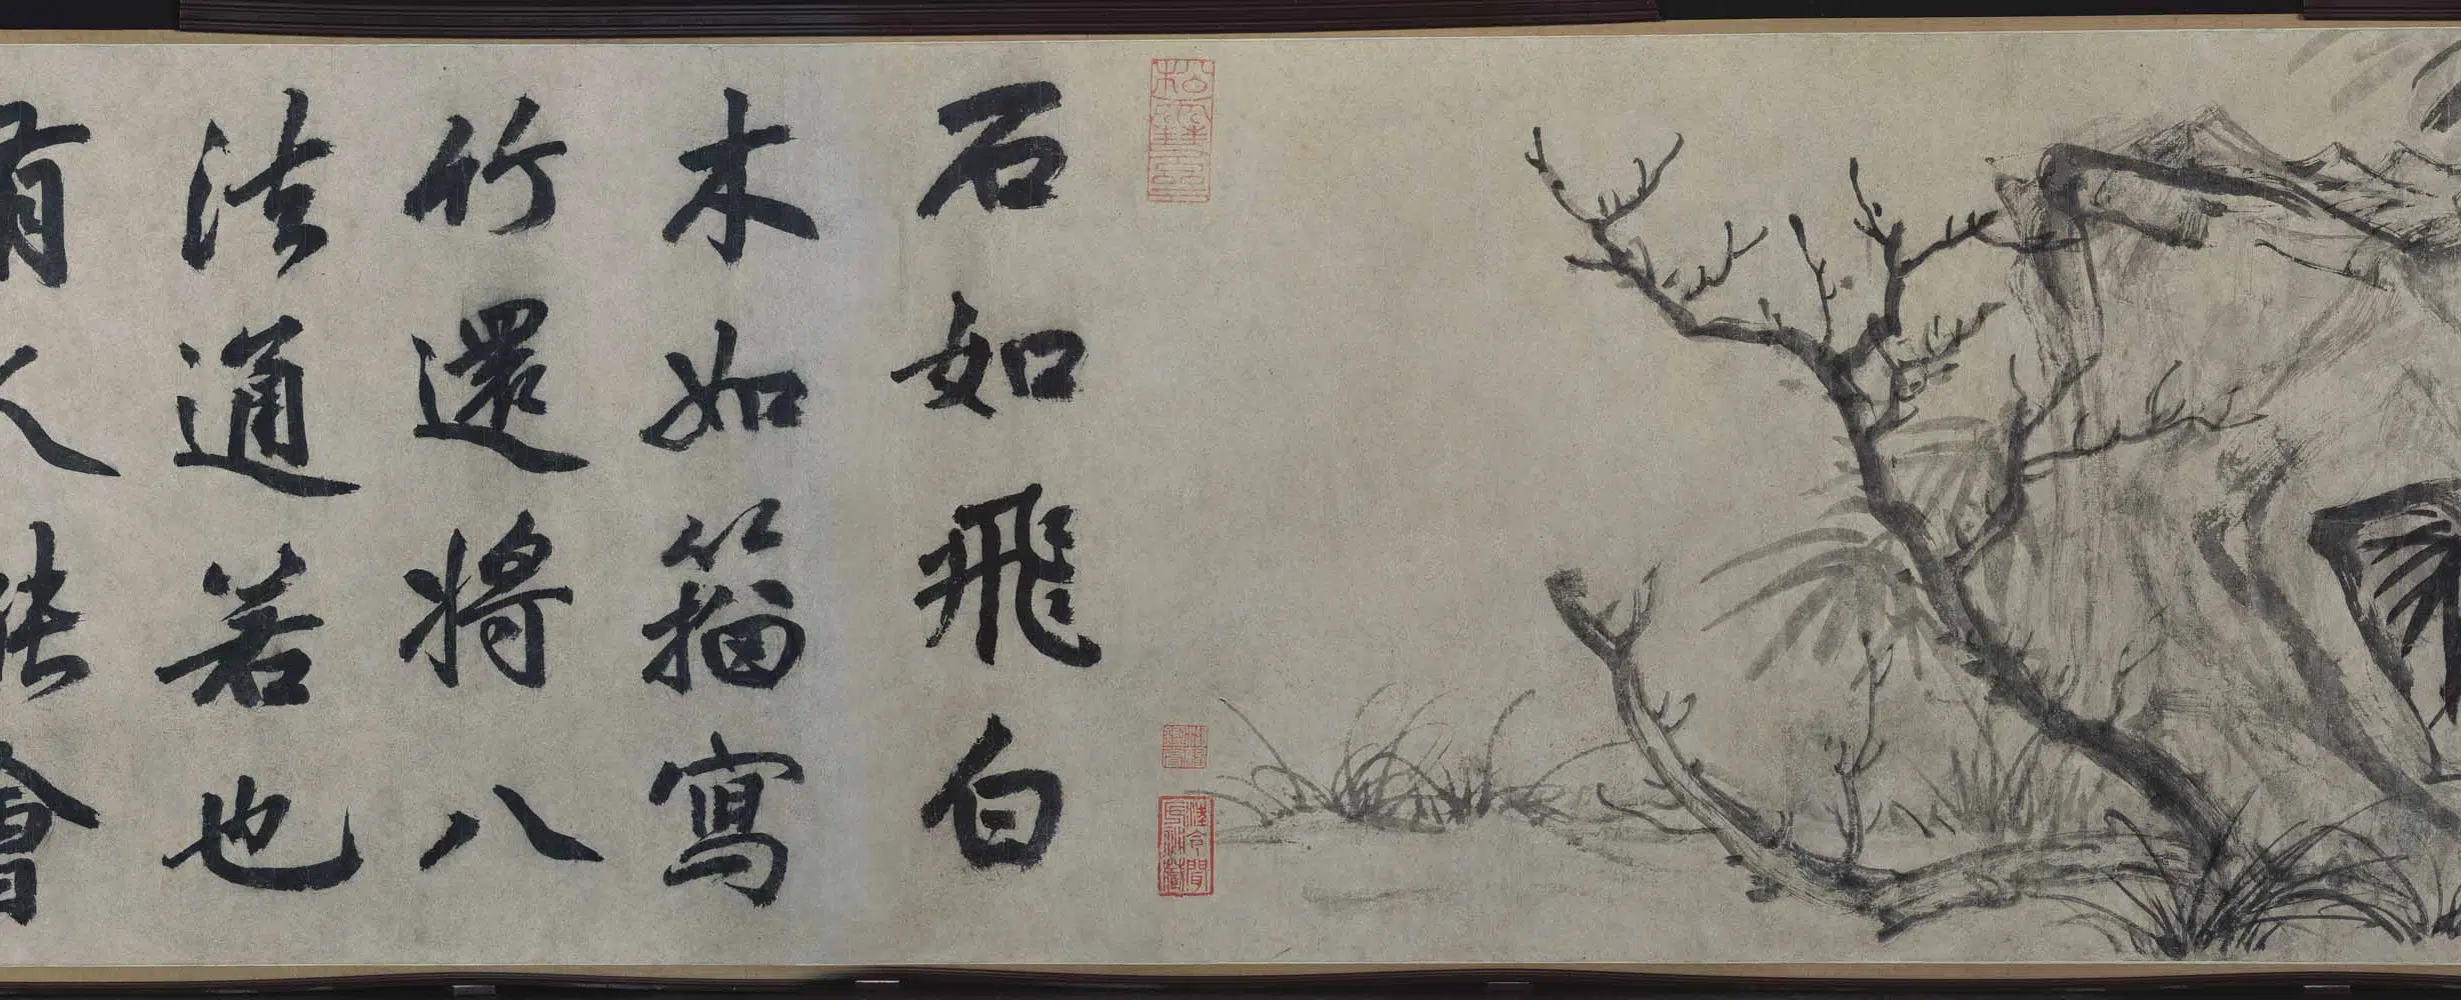 石如飛白
木如籀寫
竹還將八
法通若也
有人能會
松雪齋